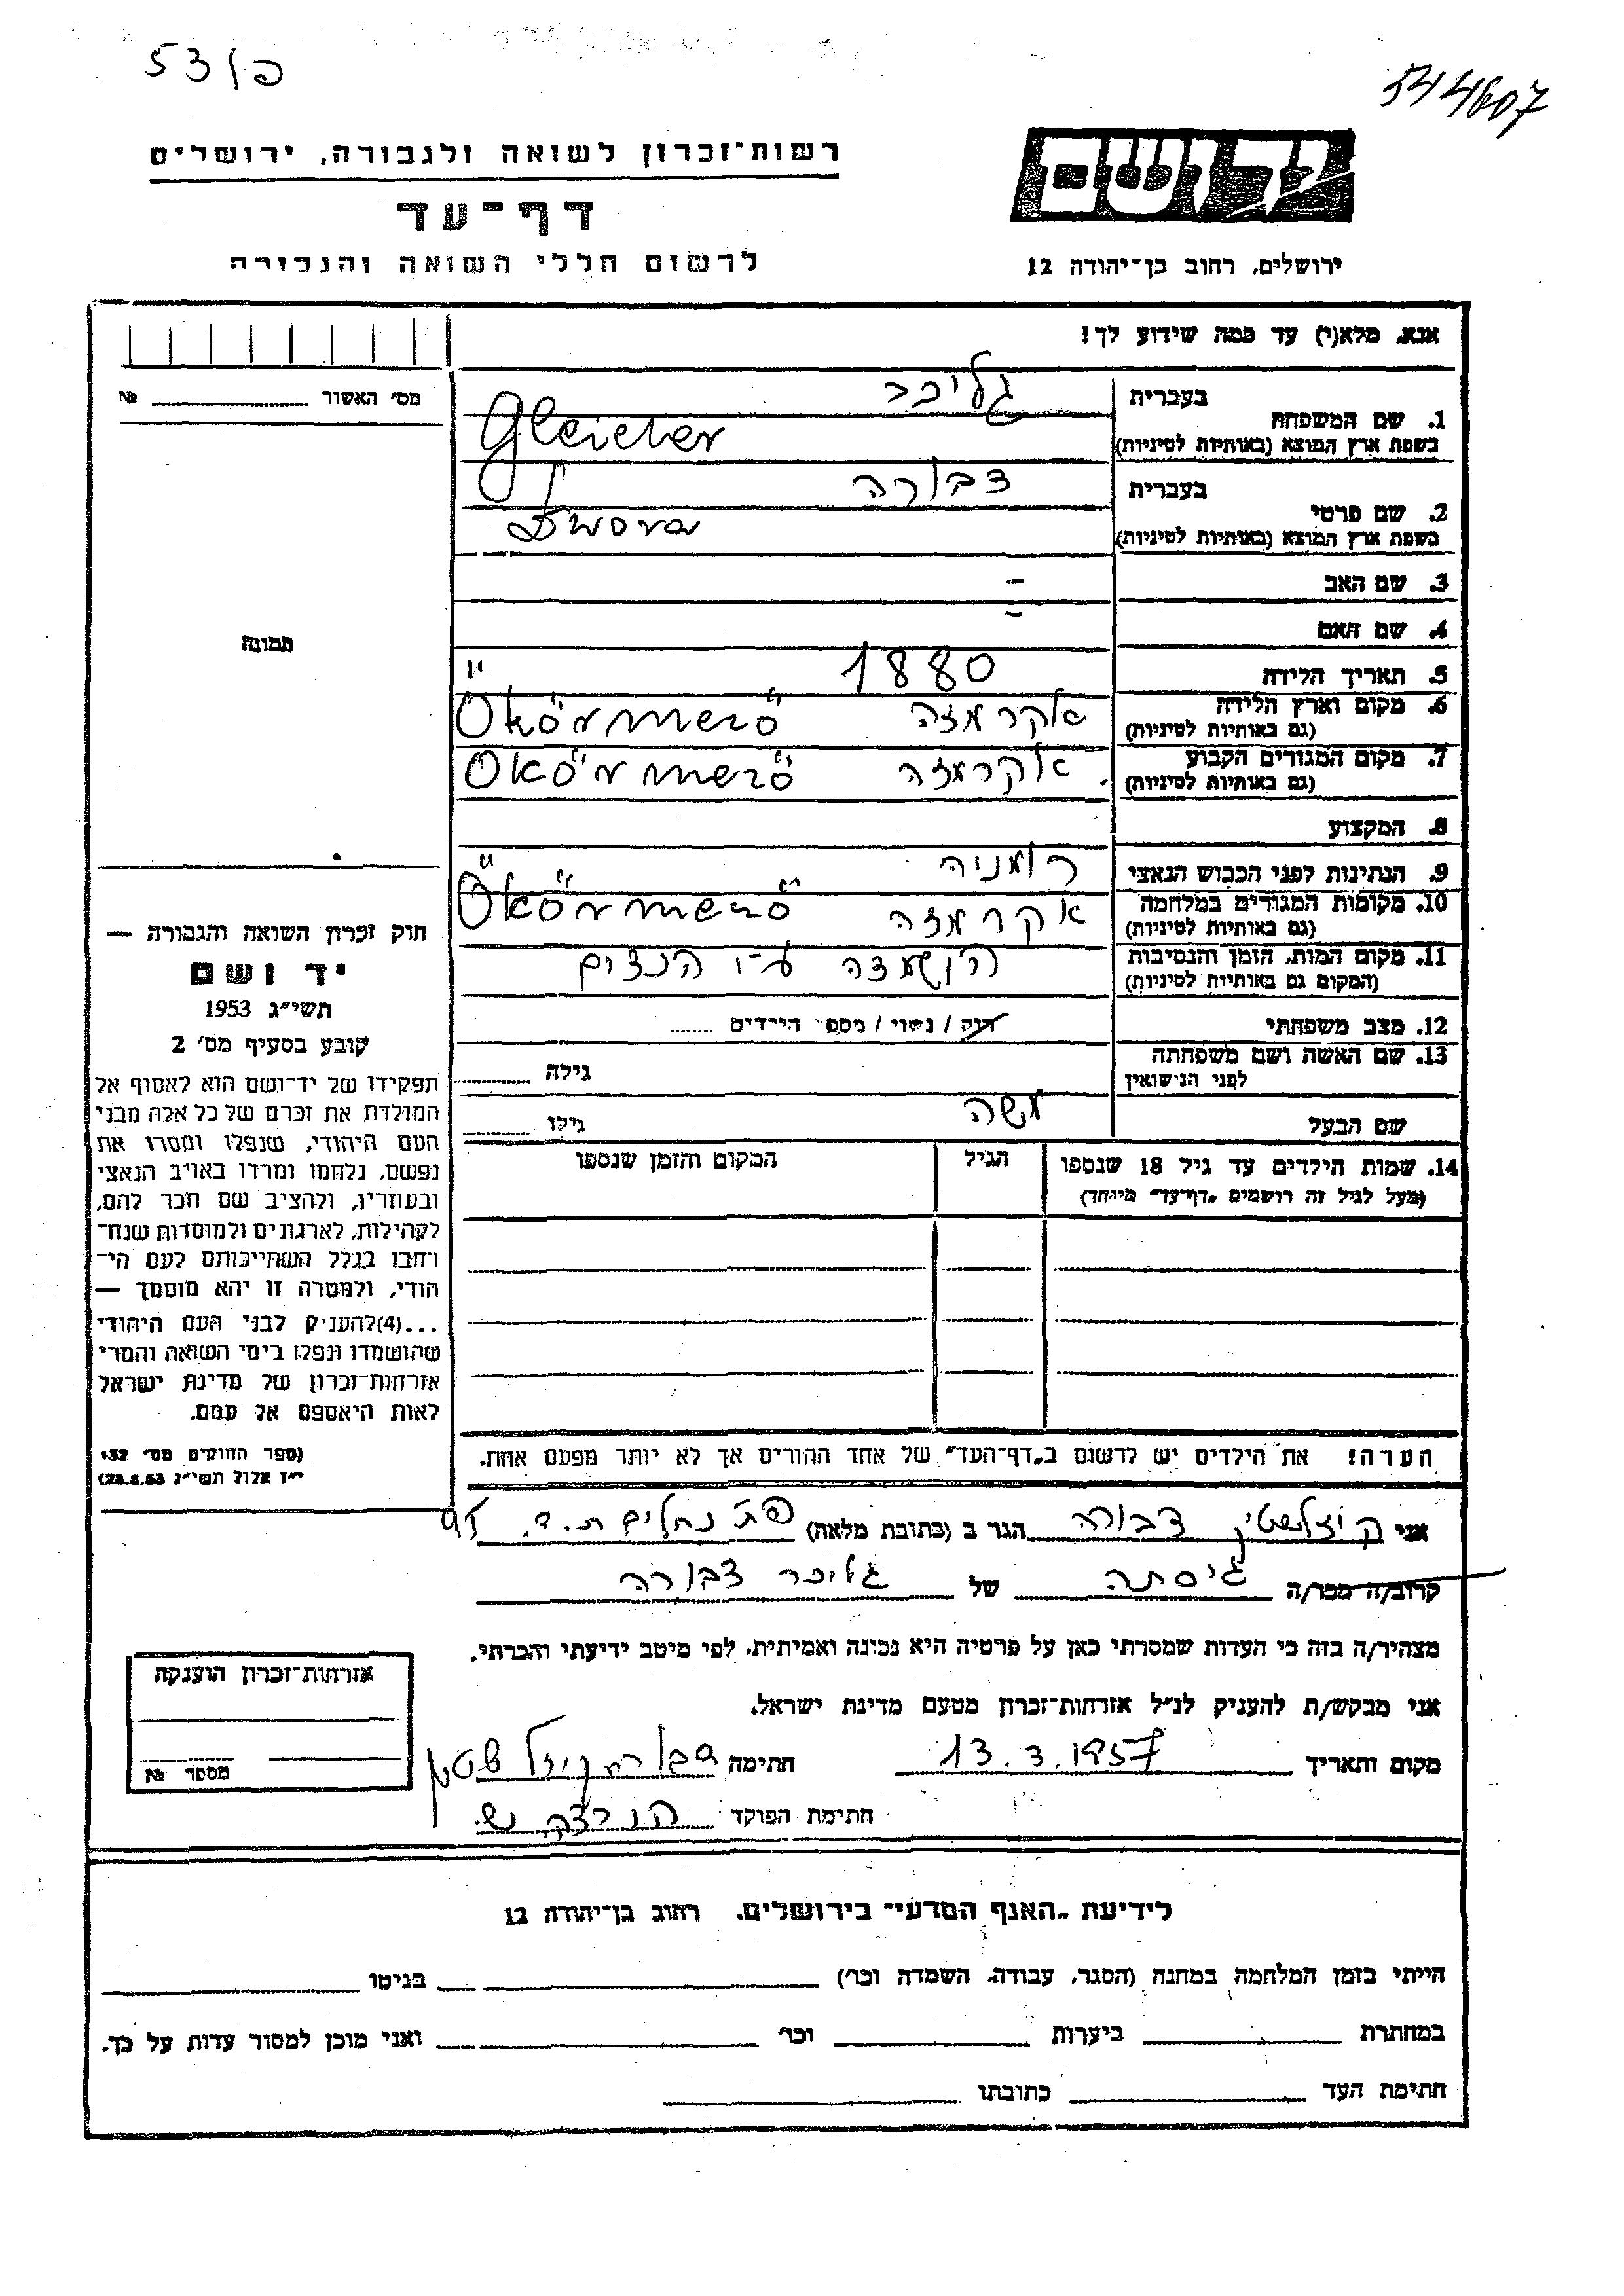 53 / פ
544607
רשות־זכרון לשואה ולגבורה, ירושלים
דף־עד
לרשום חללי השואה והגבורה
יד ושם
ירושלים, רחוב בן־יהודה 12
אנא, מלא(י) עד כמה שידוע לך!
מס׳ האשור № 
1. שם המשפחה
בעברית גליכר
בשפת ארץ המוצא (באותיות לטיניות) Gleicher
2. שם פרטי
בעברית דבורה
בשפת ארץ המוצא (באותיות לטיניות) Dwora
3. שם האב –
4. שם האם –
5. תאריך הלידה 1880
6. מקום וארץ הלידה אקרמזה Ökörmező
(גם באותיות לטיניות)
7. מקום המגורים הקבוע אקרמזה Ökörmező
(גם באותיות לטיניות)
8. המקצוע
9. הנתינות לפני הכבוש הנאצי רומניה
10. מקומות המגורים במלחמה אקרמזה Ökörmező
(גם באותיות לטיניות)
11. מקום המות, הזמן והנסיבות הושמדה ע״י הנצים
(המקום גם באותיות לטיניות)
12. מצב משפחתי רוק / נשוי / מספר הילדים
13. שם האשה ושם משפחתה
לפני הנישואין גילה
שם הבעל משה גילו
14. שמות הילדים עד גיל 18 שנספו הגיל המקום והזמן שנספו
(מעל לגיל זה רושמים „דף־עד״ מיוחד)
הערה! את הילדים יש לרשום ב„דף־העד״ של אחד ההורים אך לא יותר מפעם אחת.
תמונה
חוק זכרון השואה והגבורה —
יד ושם
תשי״ג 1953
קובע בסעיף מס׳ 2
תפקידו של יד־ושם הוא לאסוף אל
המולדת את זכרם של כל אלה מבני
העם היהודי, שנפלו ומסרו את
נפשם, נלחמו ומרדו באויב הנאצי
ובעוזריו, ולהציב שם וזכר להם,
לקהילות, לארגונים ולמוסדות שנח־
רבו בגלל השתייכותם לעם הי־
הודי, ולמטרה זו יהא מוסמך —
...(4)להעניק לבני העם היהודי
שהושמדו ונפלו בימי השואה והמרי
אזרחות־זכרון של מדינת ישראל
לאות היאספם אל עמם.
(ספר החוקים מס׳ 132
י״ז אלול תשי״ג 28.8.53)
אני קוזלשטין דבורה הגר ב (כתובת מלאה) פת נחלים ת.ד. 95
קרוב/ה מכר/ה גיסתה של גליכר דבורה
מצהיר/ה בזה כי העדות שמסרתי כאן על פרטיה היא נכונה ואמיתית, לפי מיטב ידיעתי והכרתי.
אני מבקש/ת להעניק לנ״ל אזרחות־זכרון מטעם מדינת ישראל.
מקום ותאריך 13.3.1957 חתימה
חתימת הפוקד
אזרחות־זכרון הוענקה
מספר №
לידיעת „האגף המדעי״ בירושלים, רחוב בן־יהודה 12
הייתי בזמן המלחמה במחנה (הסגר, עבודה, השמדה וכו׳) בגיטו
במחתרת ביערות וכו׳ ואני מוכן למסור עדות על כך.
חתימת העד כתובתו